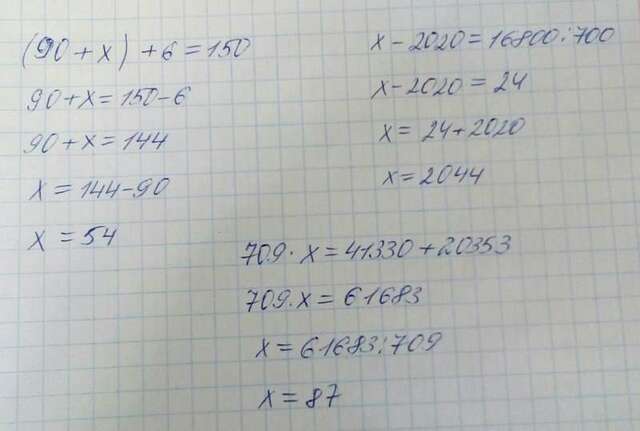 (90 + x) + 6 = 150
90 + x = 150 - 6
90 + x = 144
x = 144 - 90
x = 54
x - 2020 = 16800 : 700
x - 2020 = 24
x = 24 + 2020
x = 2044
709 · x = 41330 + 20353
709 · x = 61683
x = 61683 : 709
x = 87